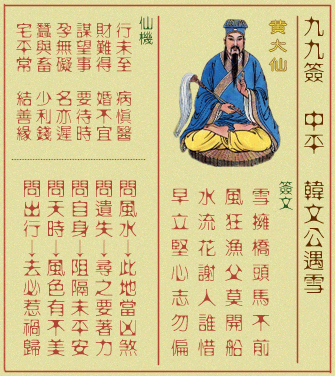 九九簽 中平 韓文公遇雪
黃大仙
簽文
雪擁橋頭馬不前
風狂漁父莫開船
水流花謝人誰惜
早立堅心志勿偏
仙機
行未至 病慎醫
財難得 婚不宜
謀望事 要待時
孕無礙 名亦遲
蠶與畜 少利錢
宅平常 結善緣
問風水→此地當凶煞
問遺失→尋之要著力
問自身→阻隔未平安
問天時→風色有不美
問出行→去必惹禍歸